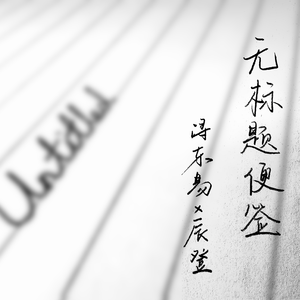 无标题便签
浔东易×辰登
Untitled